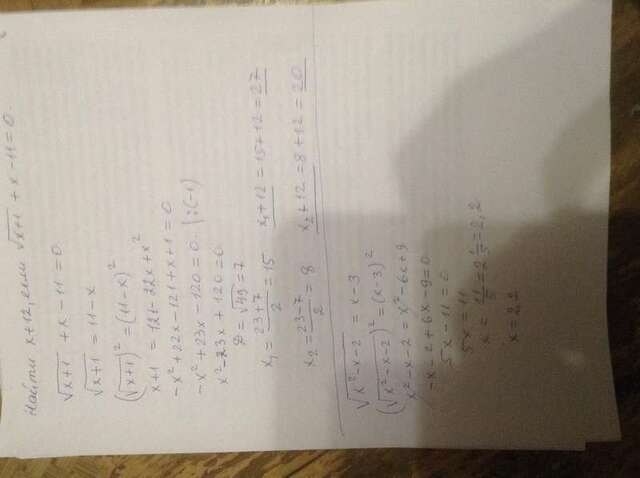 Найти x+12, если √(x+1) + x - 11 = 0.
√(x+1) + x - 11 = 0
√(x+1) = 11 - x
(√(x+1))² = (11 - x)²
x+1 = 121 - 22x + x²
-x² + 22x - 121 + x + 1 = 0
-x² + 23x - 120 = 0 |:(-1)
x² - 23x + 120 = 0
D = √49 = 7
x₁ = (23+7)/2 = 15 x₁+12 = 15+12 = 27
x₂ = (23-7)/2 = 8 x₂+12 = 8+12 = 20
√(x²-x-2) = x-3
(√(x²-x-2))² = (x-3)²
x²-x-2 = x²-6x+9
-x-2+6x-9=0
5x-11=0
5x=11
x = 11/5 = 2 1/5 = 2,2
x = 2,2